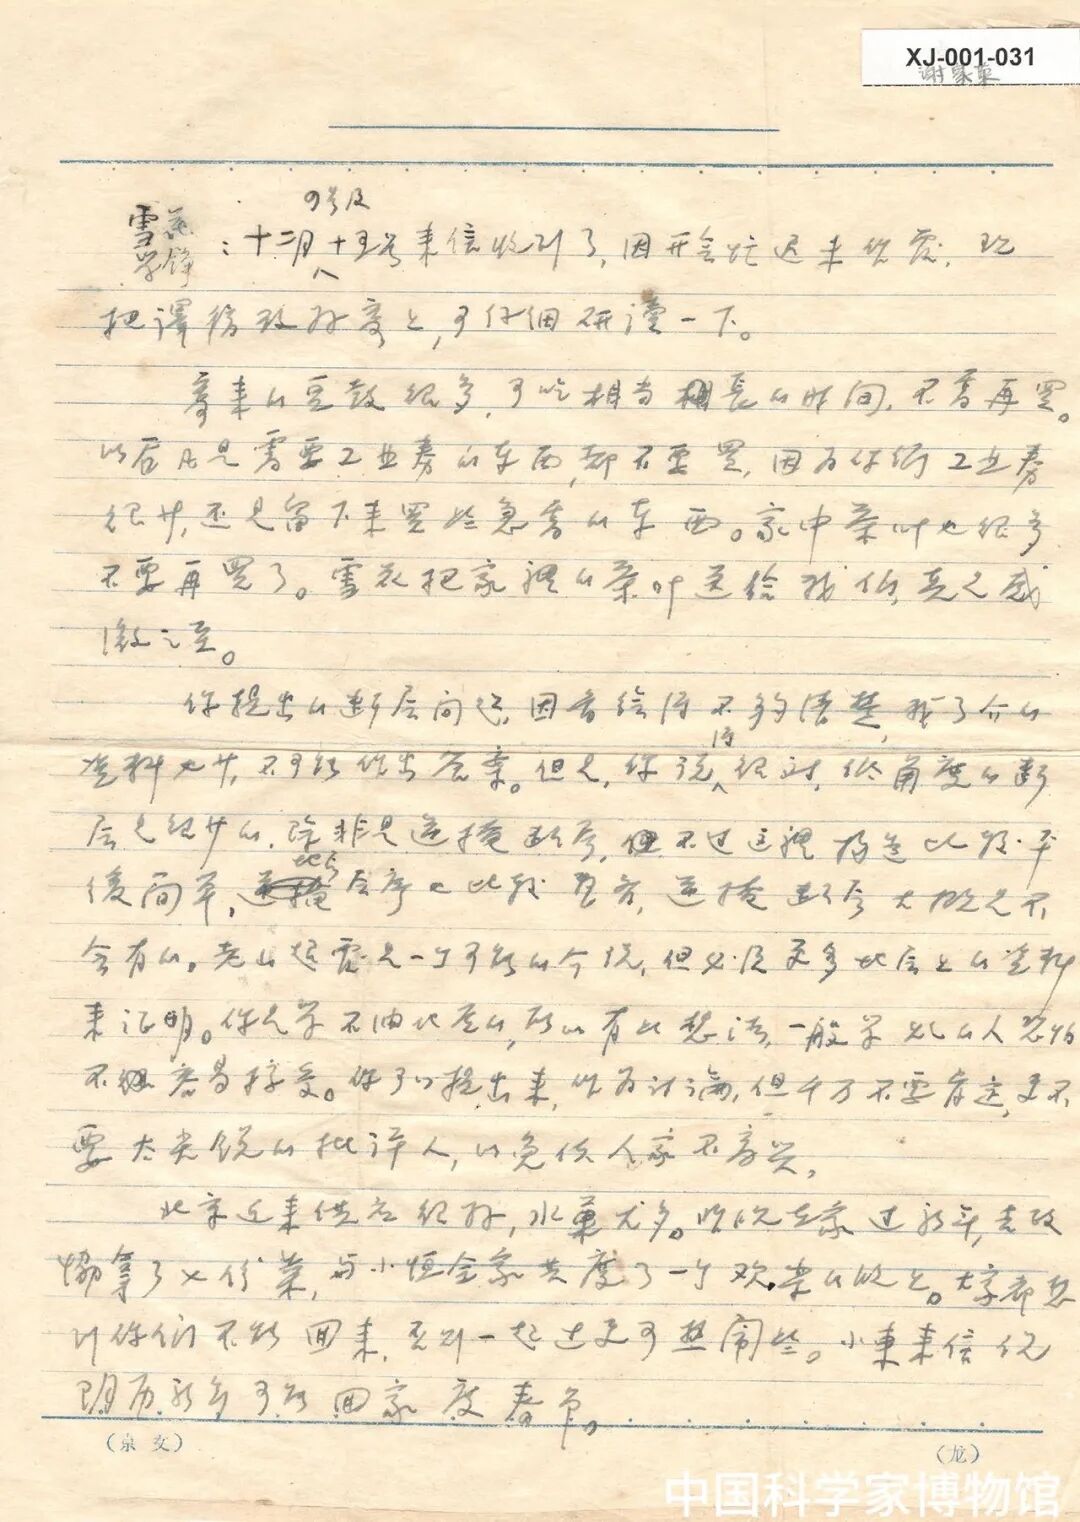 XJ-001-031
谢家荣
9号及
雪花
学铮：十二月十五号来信收到了，因开会忙迟来作覆，现
把译稿改好寄上，可仔细研读一下。
寄来的豆豉很多，可吃相当长的时间，不需再买。
以后凡是需要工业券的东西，都不要买，因为你们工业券
很少，还是留下来买些急需的东西。家中茶叶也很多
不要再买了。雪花把家里的茶叶送给我们，真是感
激之至。
你提出的断层问题，因香绘得不够清楚，我了介的
资料也少，不可能作出答案。但是，你说得很对，低角度的断
层是很少的，除非是逆掩断层，但不过这里构造比较平
缓简单，此与层序也比较整齐，逆掩断层大概是不
会有的。老山超覆是一个可能的介说，但必须更多此层上的资料
来证明。你是学石油地质的，所以有此想法，一般学的人恐怕
不很容易接受。你可以提出来，作为讨论，但千万不要肯定，更不
要太尖锐的批评人，以免使人家不高兴。
北京近来供应很好，水菓尤多。昨晚在家过新年，去政
协拿了七份菜，与小恒全家共度了一个欢乐的晚上。大家都想
到你们不能回来，否则一起过更可热闹些。小东来信说
阴历新年可能回家度春节。
（京文）
（龙）
中国科学家博物馆